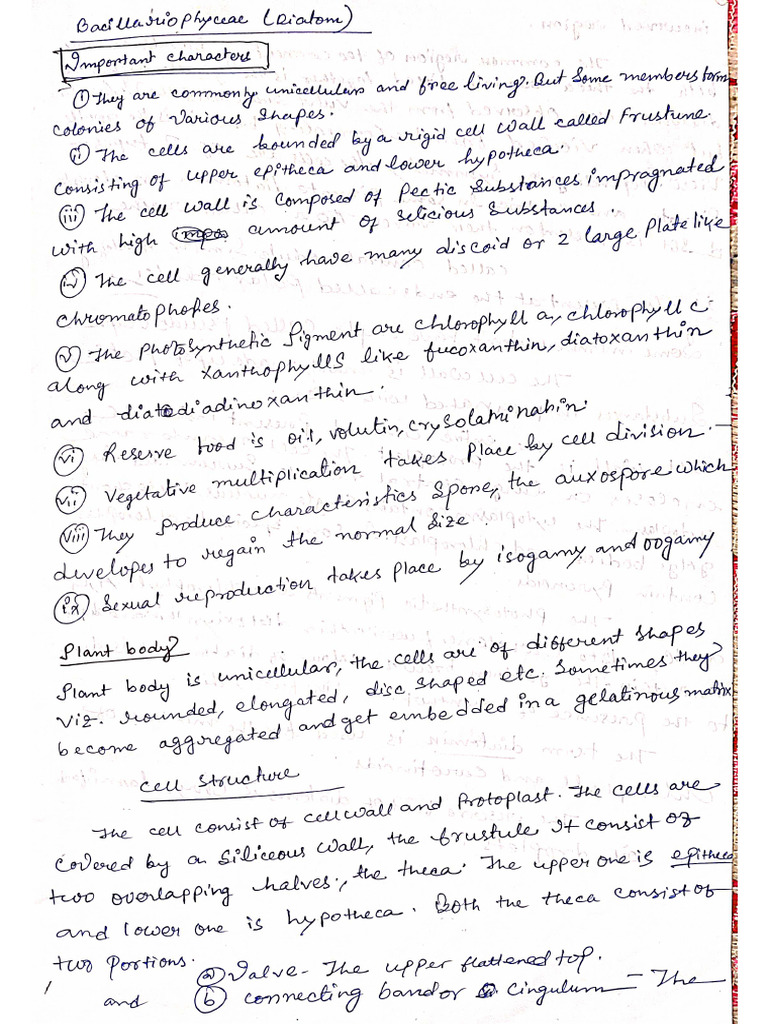 Bacillariophyceae (Diatom)
Important characters
(i) They are commonly unicellulars and free living. But some members form
colonies of various shapes.
(ii) The cells are bounded by a rigid cell wall called Frustune.
consisting of upper epitheca and lower hypotheca.
(iii) The cell wall is composed of Pectic Substances impragnated
with high amount of selicious Substances.
(iv) The cell generally have many discoid or 2 large Plate like
chromatophores.
(v) The Photosynthetic Pigment are chlorophyll a, chlorophyll c
along with xanthophylls like fucoxanthin, diatoxanthin
and diadinoxanthin.
(vi) Reserve food is oil, volutin, crysolaminahin.
(vii) Vegetative multiplication takes Place by cell division.
(viii) They Produce characteristics Spore, the auxospore which
developes to regain the normal size
(ix) Sexual reproduction takes place by isogamy and oogamy
Plant body?
Plant body is unicellular, the cells are of different shapes
Viz. rounded, elongated, disc shaped etc. Sometimes they
become aggregated and get embedded in a gelatinous matrix
Cell Structure
The cell consist of cell wall and Protoplast. The cells are
covered by a siliceous wall, the frustule It consist of
two overlapping halves, the theca. The upper one is epitheca
and lower one is hypotheca. Both the theca consist of
two Portions.
(a) Valve - The upper flattened top.
and (b) connecting band or cingulum = The